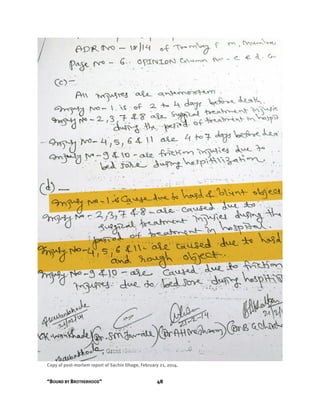 ADR NO - 18/14 of
Page No - 6. OPINION Column No - c & d. G
(c) -
All Injuries are antemortem.
Injury No - 1. is of 2 to 4 days before death.
Injury No - 2, 3, 7 & 8 are Surgical treatment
during the period of treatment in
Injury No - 4, 5, 6 & 11 are 4 to 7 days before
Injury No - 9 & 10 - are friction injuries due to
bed sore during hospitilization.
(d) -
Injury No - 1 is Cause due to hard & blunt object
Injury No - 2, 3, 7 & 8 - are caused due to
surgical treatment injuries during the
period of treatment in hospital
Injury No - 4, 5, 6 & 11 - are caused due to hard
and rough object.
Injury No - 9 & 10 - are Caused due to friction
injuries due to bed sore during
21/2/14
21-2-14
Copy of post-mortem report of Sachin Ghage, February 21, 2014.
"BOUND BY BROTHERHOOD" 48